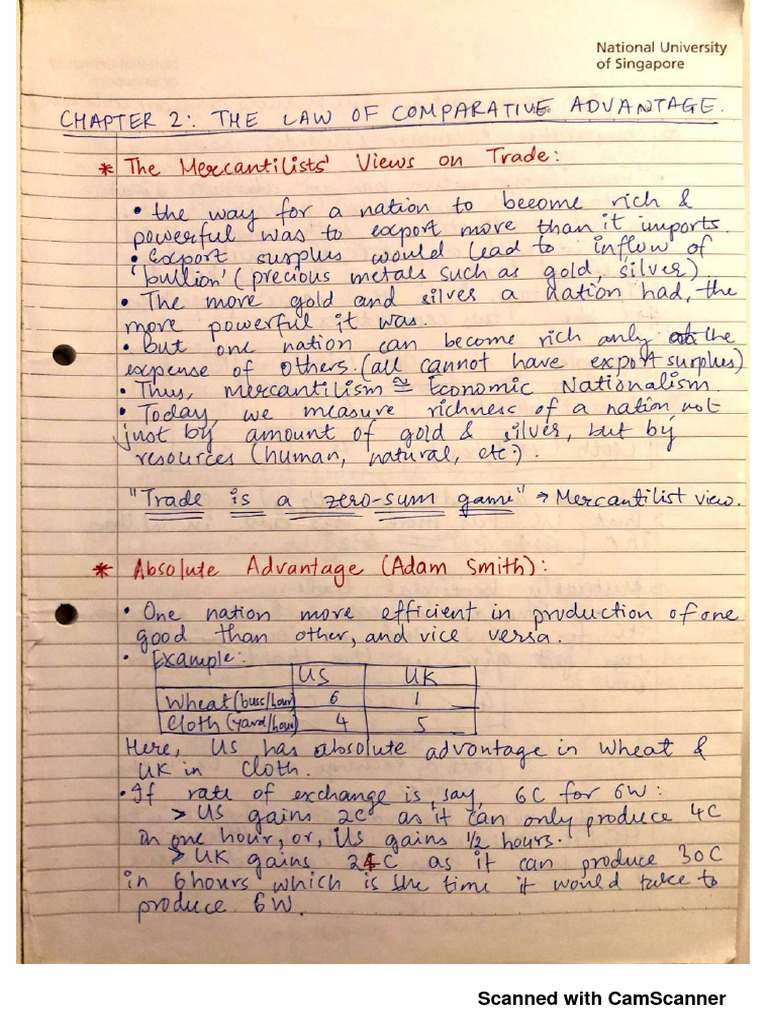 National University
of Singapore
CHAPTER 2: THE LAW OF COMPARATIVE ADVANTAGE.
* The Mercantilists' Views on Trade:
• the way for a nation to become rich &
powerful was to export more than it imports.
• Export surplus would lead to inflow of
'bullion' (precious metals such as gold, silver)
• The more gold and silver a nation had, the
more powerful it was.
• But one nation can become rich only at the
expense of others. (all cannot have export surplus)
• Thus, mercantilism ≅ Economic Nationalism.
• Today, we measure richness of a nation, not
just by amount of gold & silver, but by
resources (human, natural, etc.).
"Trade is a zero-sum game" → Mercantilist view.
* Absolute Advantage (Adam Smith):
• One nation more efficient in production of one
good than other, and vice versa.
• Example:
US UK
Wheat (bus/hour) 6 1
Cloth (yard/hour) 4 5
Here, US has absolute advantage in wheat &
UK in cloth.
• If rate of exchange is, say, 6C for 6W:
> US gains 2C as it can only produce 4C
in one hour, or, US gains 1/2 hours.
> UK gains 24C as it can produce 30C
in 6 hours which is the time it would take to
produce 6W.
Scanned with CamScanner